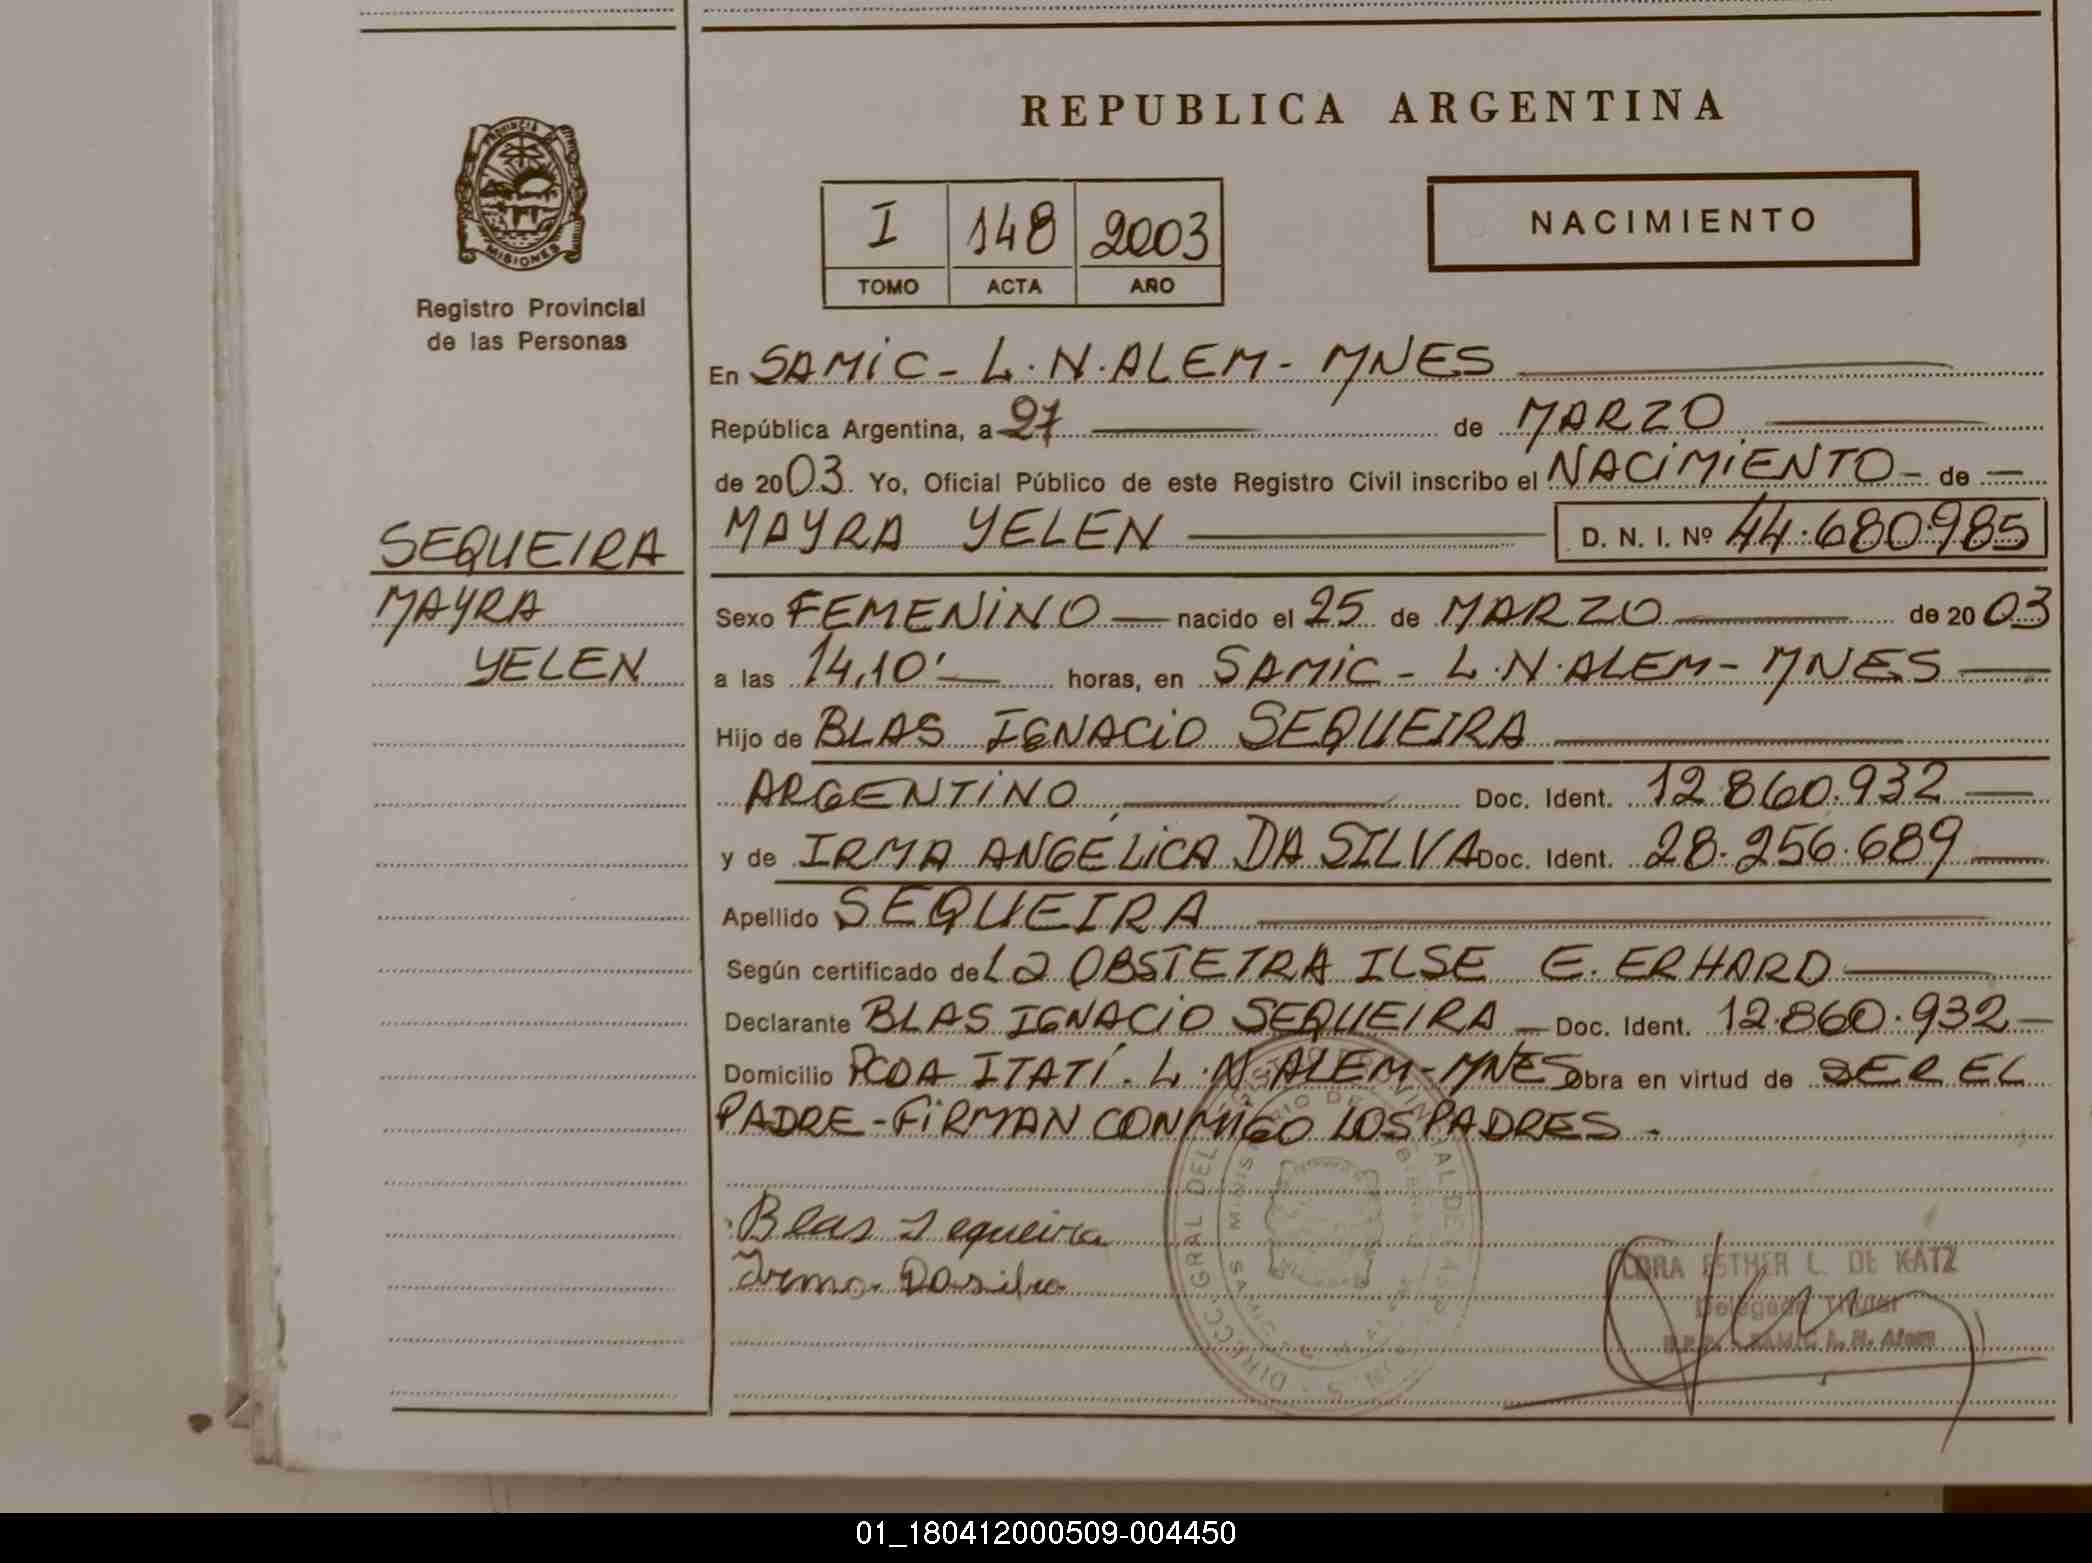 REPUBLICA ARGENTINA
PROVINCIA DE
MISIONES
Registro Provincial
de las Personas
I 148 2003
TOMO ACTA AÑO
NACIMIENTO
En SAMIC - L.N.ALEM - MNES
República Argentina, a 27 de MARZO
de 2003. Yo, Oficial Público de este Registro Civil inscribo el NACIMIENTO - de
SEQUEIRA
MAYRA
YELEN
MAYRA YELEN D. N. I. Nº 44.680.985
Sexo FEMENINO nacido el 25 de MARZO de 2003
a las 14,10' horas, en SAMIC - L.N.ALEM - MNES
Hijo de BLAS IGNACIO SEQUEIRA
ARGENTINO Doc. Ident. 12.860.932
y de IRMA ANGÉLICA DA SILVA Doc. Ident. 28.256.689
Apellido SEQUEIRA
Según certificado de La OBSTETRA ILSE E. ERHARD
Declarante BLAS IGNACIO SEQUEIRA Doc. Ident. 12.860.932
Domicilio PCOA ITATÍ. L.N.ALEM-MNES Obra en virtud de SER EL
PADRE - FIRMAN CONMIGO LOS PADRES.
Blas Sequeira
Irma Dasilva
ESTHER L. DE KATZ
Delegada Titular
SAMIC L. N. Alem
01_180412000509-004450